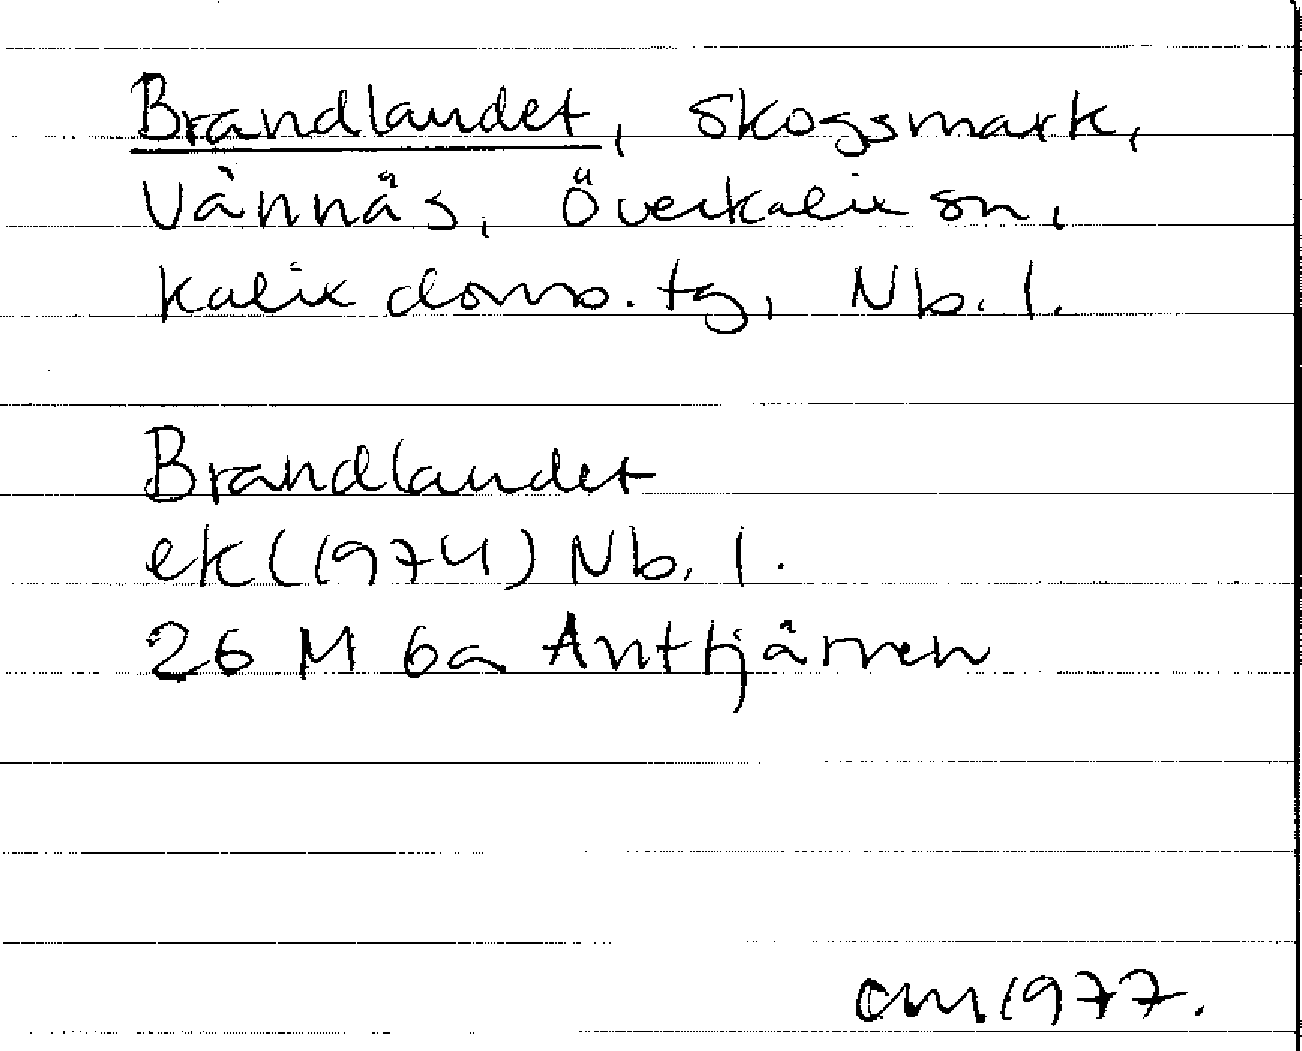 Brandlandet, skogsmark,
Vännäs, Överkalix sn,
Kalix doms.tg, Nb. l.
Brandlandet
ek (1974) Nb. l.
26 M 6a Anttjärnen
cm 1977.